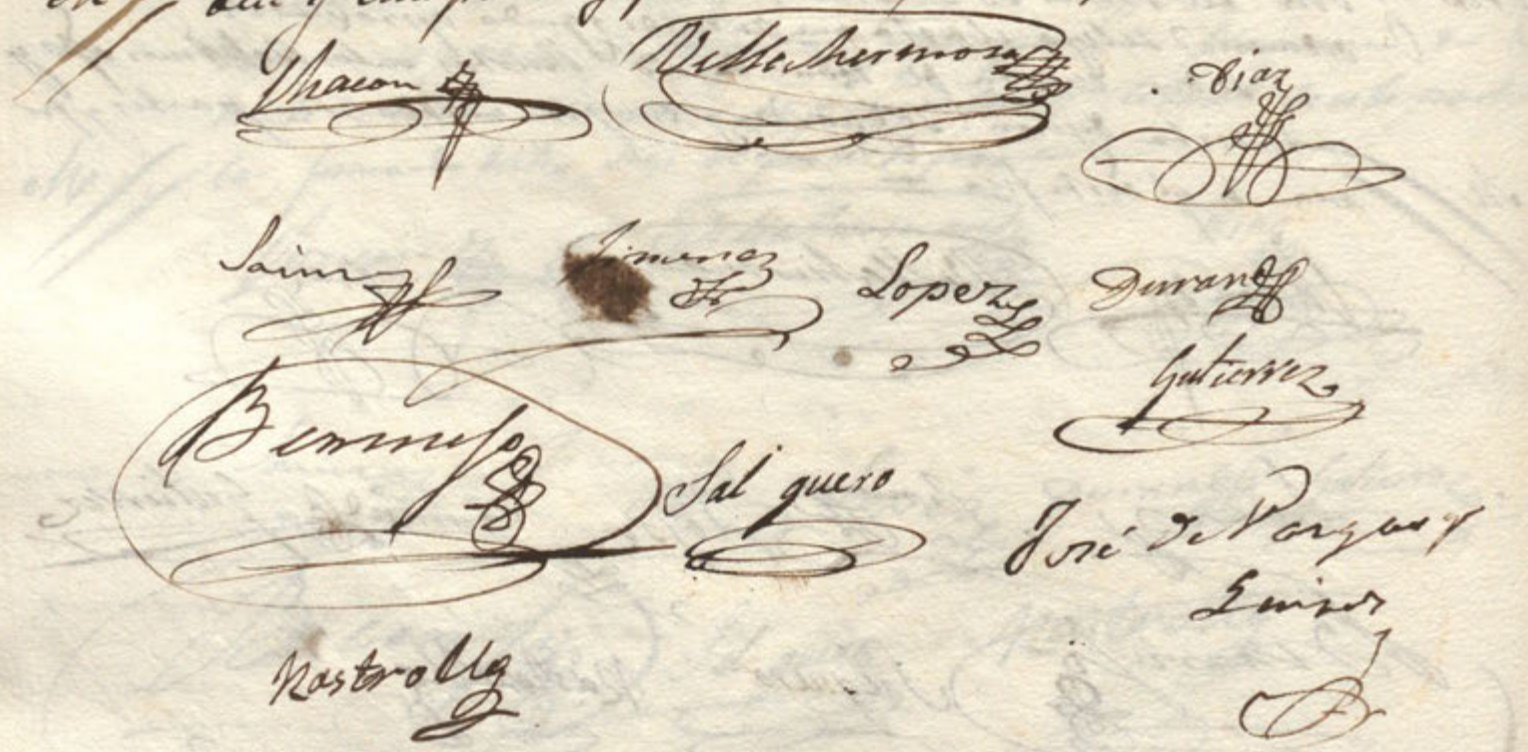 Chacon Villahermosa Diaz
Sainz Jimenez Lopez Duran
Gutierrez
Bermejo Salguero
José de Vargas y
Rastrollo